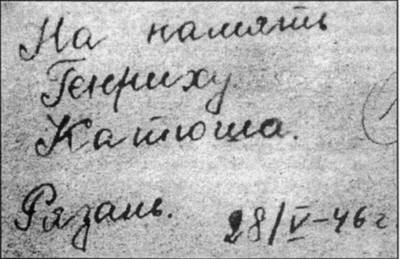 На память
Генриху.
Катюша.
Рязань. 28/V-46 г